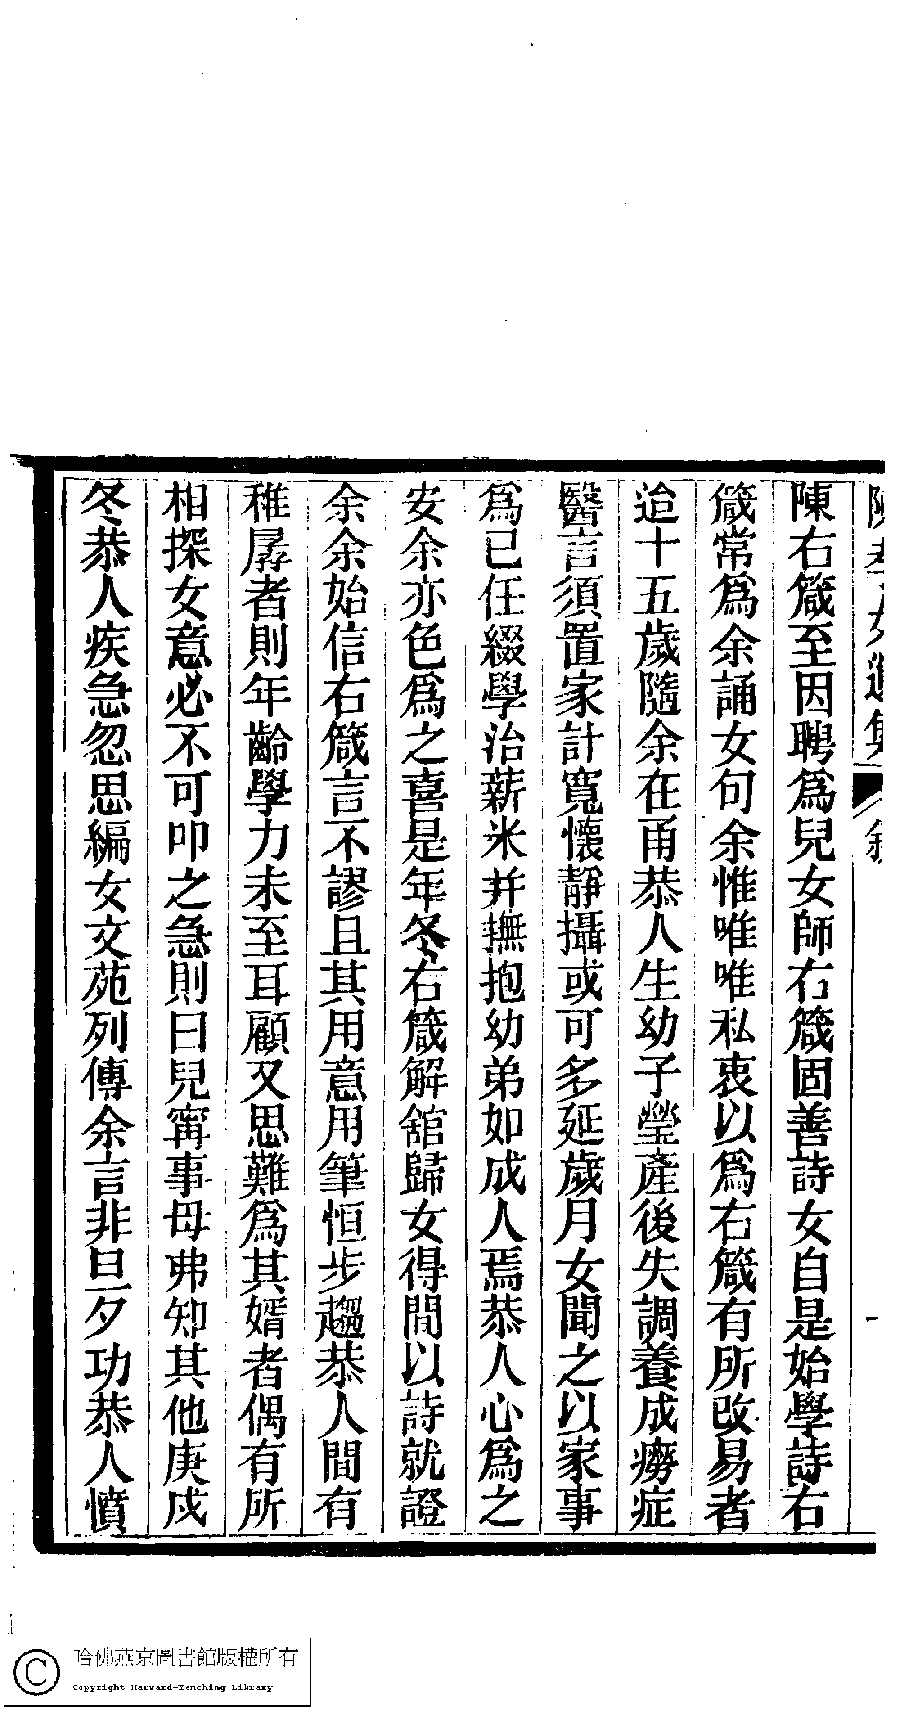 陳孝女遺集 敘 一
陳右箴至因聘爲兒女師右箴固善詩女自是始學詩右
箴常爲余誦女句余惟唯唯私衷以爲右箴有所改易者
迨十五歲隨余在甬恭人生幼子瑩產後失調養成癆症
醫言須置家計寬懷靜攝或可多延歲月女聞之以家事
爲已任綴學治薪米并撫抱幼弟如成人焉恭人心爲之
安余亦色爲之喜是年冬右箴解舘歸女得間以詩就證
余余始信右箴言不謬且其用意用筆恒步趨恭人間有
稚孱者則年齡學力未至耳顧又思難爲其婿者偶有所
相探女意必不可叩之急則曰兒甯事母弗知其他庚戌
冬恭人疾急忽思編女文苑列傳余言非旦夕功恭人憤
哈佛燕京圖書館版權所有
Copyright Harvard-Yenching Library